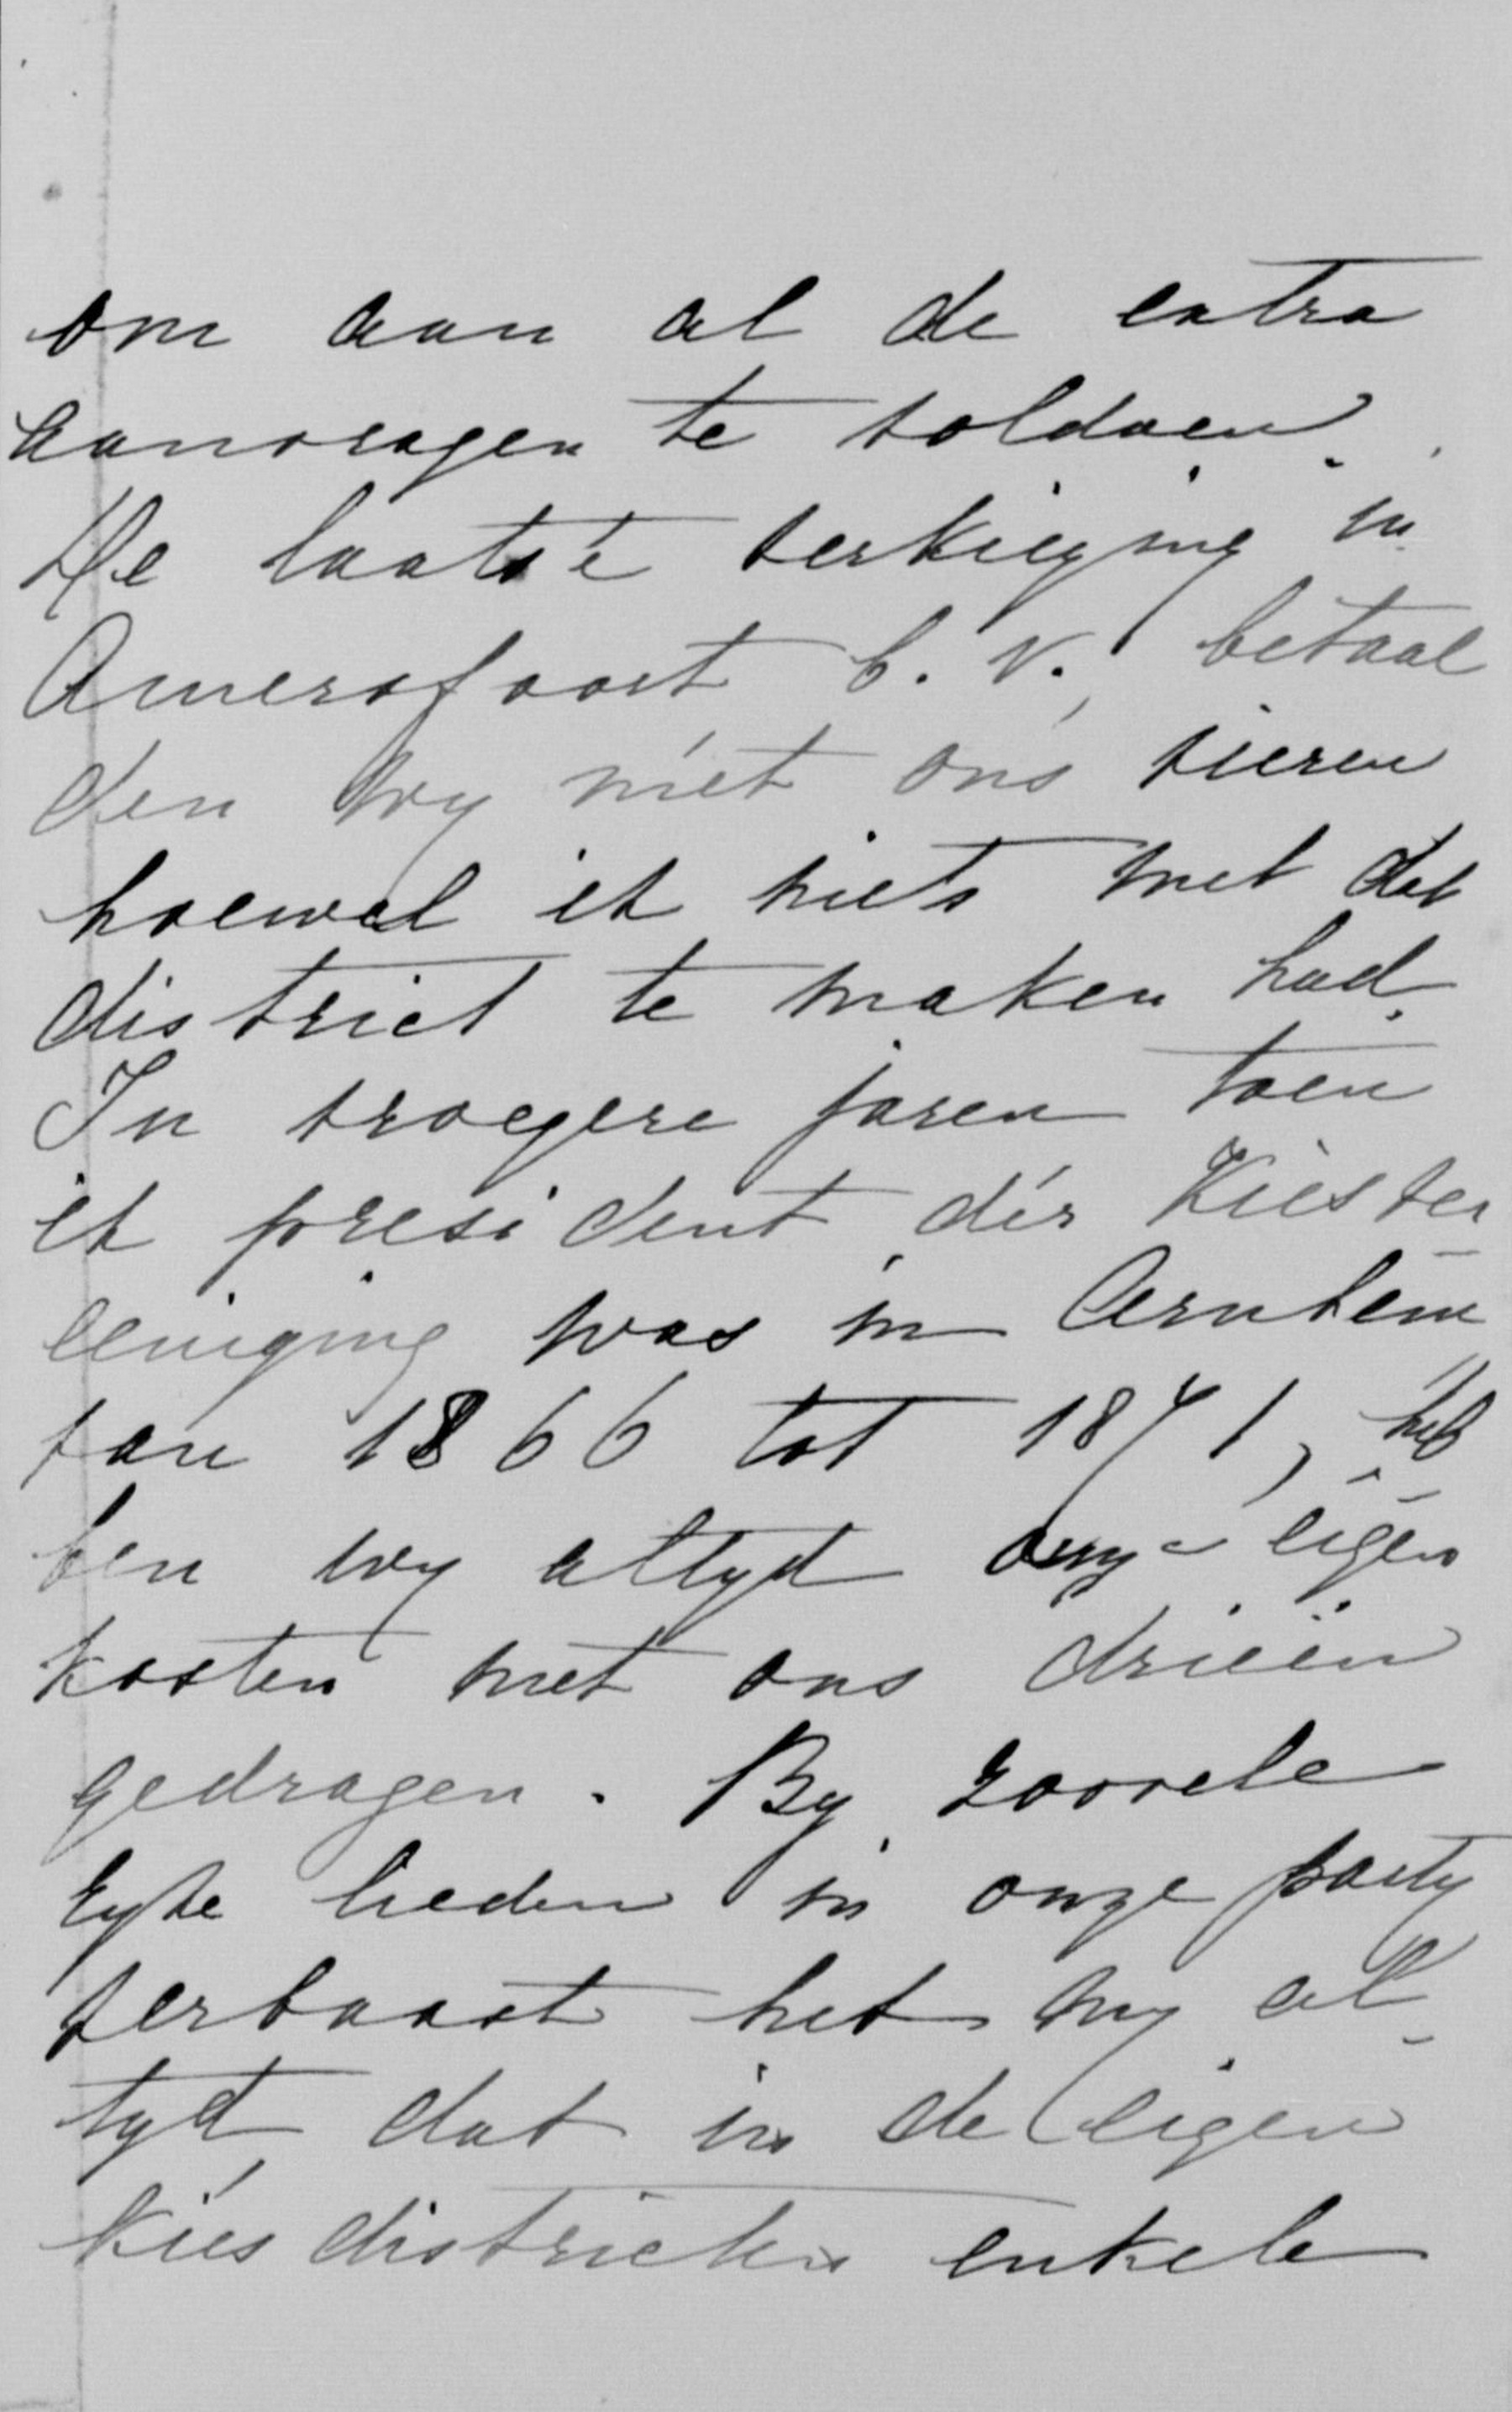 om aan al de extra
aanvragen te voldoen.
De laatste verkiezing in
Amersfoort b.v., betaal
den wy met ons vieren
hoewel ik niets met dat
district te maken had.
In vroegere jaren toen
ik president der Kiesver
eeniging was in Arnhem
van 1866 tot 1871, heb
ben wy altyd onze eigen
kosten met ons drieën
gedragen. By zoovele
ryke lieden in onze party
verbaast het my al
tyd dat in de eigen
kiesdistricten enkele